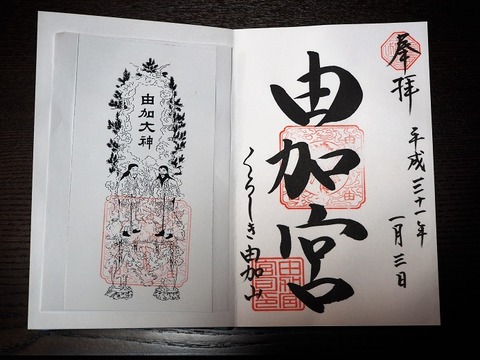 奉拝
平成三十一年
一月三日
由加宮
くらしき由加山
由加大神